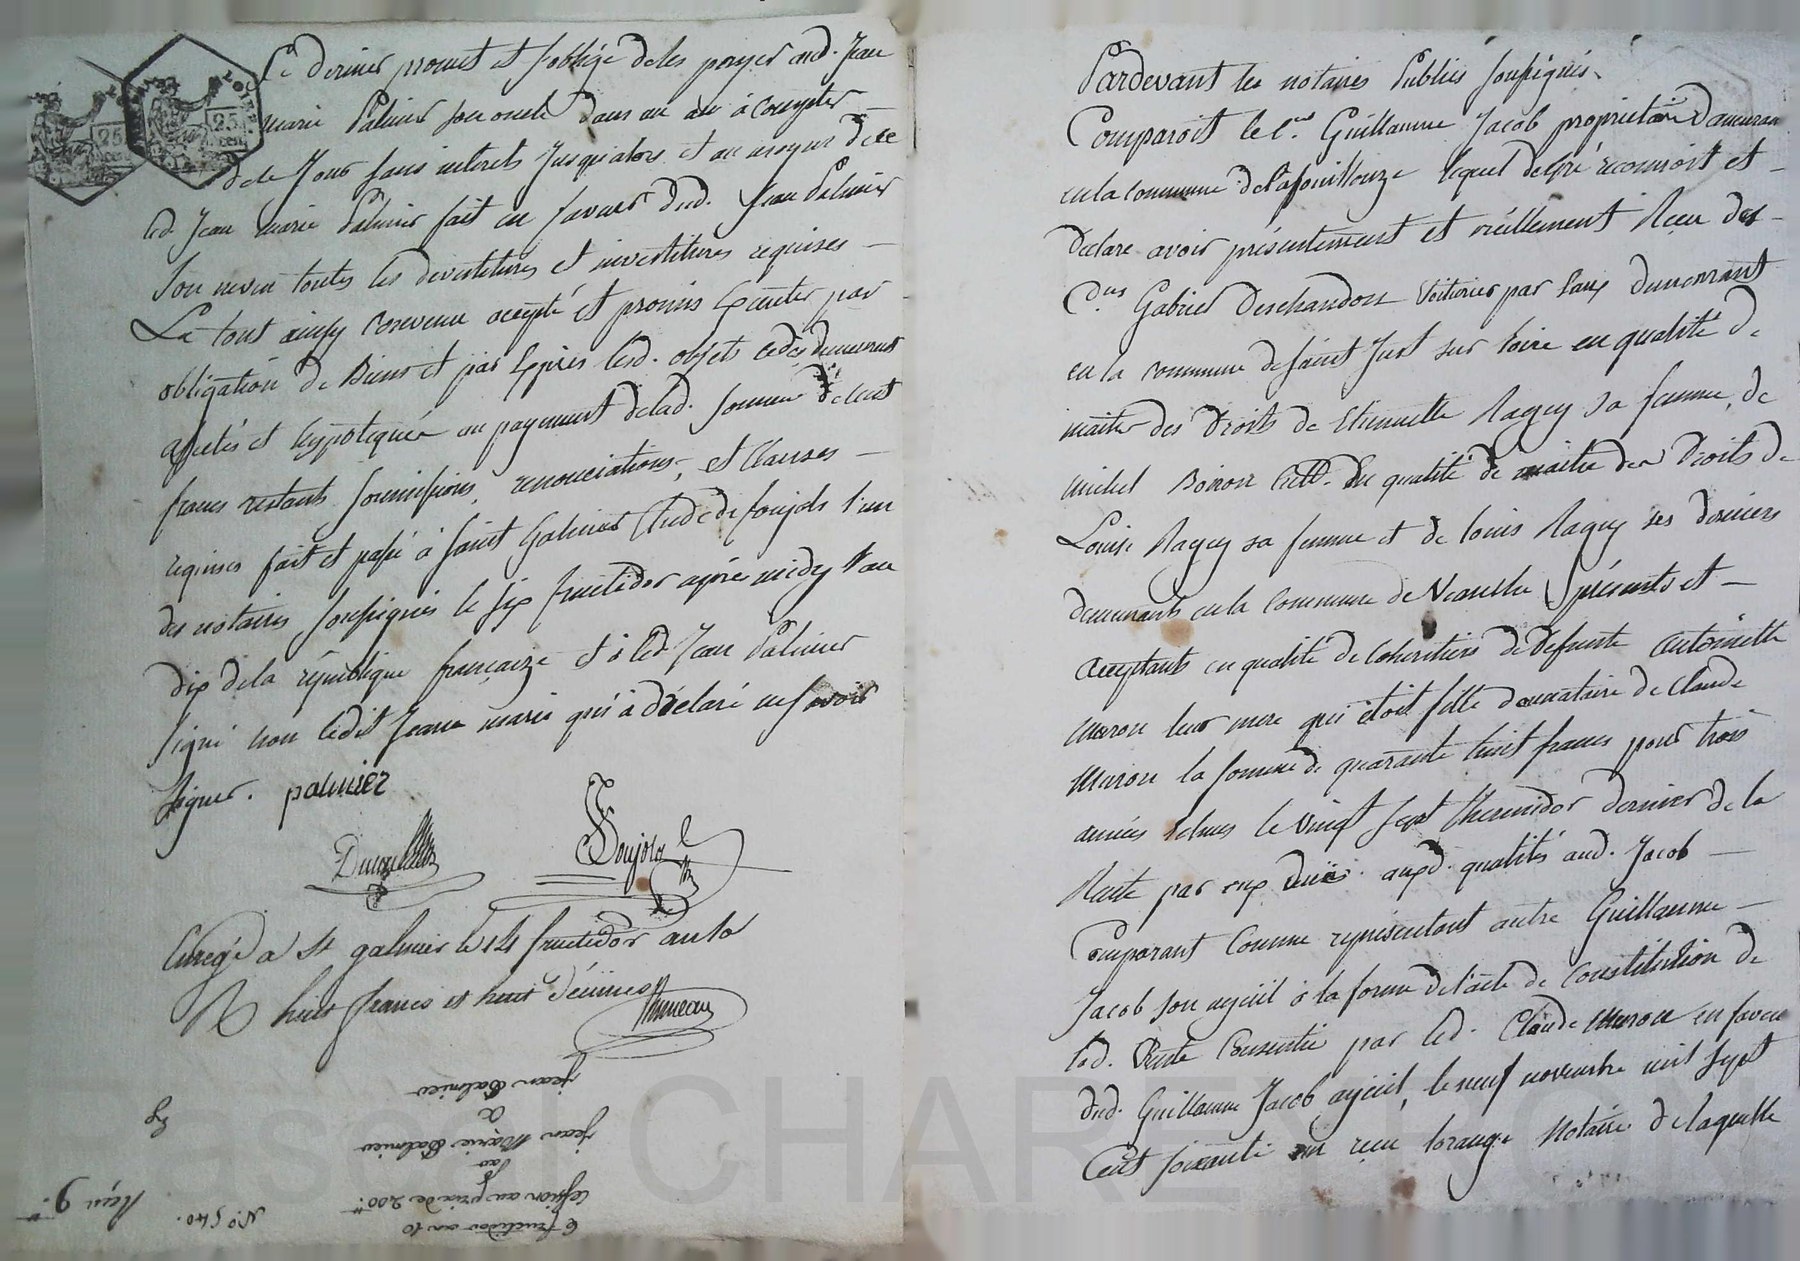 Ce dernier promet et s'obligé deles payer aud. Jean
marie Palmier son oncle dans un an à compter
de ce Jour sans interets Jusqu'alors et au moyen de ce
led. Jean marie Palmier fait en faveur dud. Jean Palmier
son neveu toutes les devestitures et investitures requises —
Le tout ainsy convenu accepté et promis Executer par
obligation de Biens et par Exprès lesd. objets cedés demeurent
affectés et hypotequés au payement delad. somme de Cent
francs restants soumissions, renonciations, et Clauses —
requises fait et passé à Saint Galmier Etude de foujols l'un
des notaires soussignés le six fructidor après midy l'an
dix dela république françaize et à led. Jean Palmier
signé non ledit Jean marie qui à déclaré ne savoir
signer. palmier
Foujols
Enregé a St galmier le 14 fructidor an 10
R huit francs et huit décimes
25 cen.
25 cen.
jean Palmier
a
jean Marie Palmier
par
Cession au prix de 200 tt
6 fructidor an 10
N.o 540.
Reçu 9.
Pardevant les notaires Publics soussignés.
Comparoit le C.en Guillaume Jacob proprietaire Demeurant
en la commune de Lafouillouze lequel de gré reconnoit et —
declare avoir présentement et réellement Recu des —
C.ens Gabriel Deschandon Voiturier par Eaux Demeurant
en la commune de saint Just sur Loire en qualité de
maitre des Droits de Etiennette Ragey sa femme, de
michel Boiron Cult. En qualité de maitre des Droits de
Louise Ragey sa femme et de louis Ragey ses derniers
demeurants en la Commune de Veauche présents et —
acceptants en qualité de Coheritiers de Defunte Antoinette
Muron leur mere qui étoit fille donnataire de Claude
Muron la somme de quarante huit francs pour trois
années échues le vingt sept thermidor dernier de la
Rente par eux düe auxd. qualités aud. Jacob —
Comparant Comme représentant autre Guillaume —
Jacob son ayeuil à la forme de l'acte de Constitution de
lad. Rente Consentie par led. Claude Muron en faveur
dud. Guillaume Jacob ayeuil, le neuf novembre mil sept
Cent soixante un recu Notaire de laquelle
CHAR